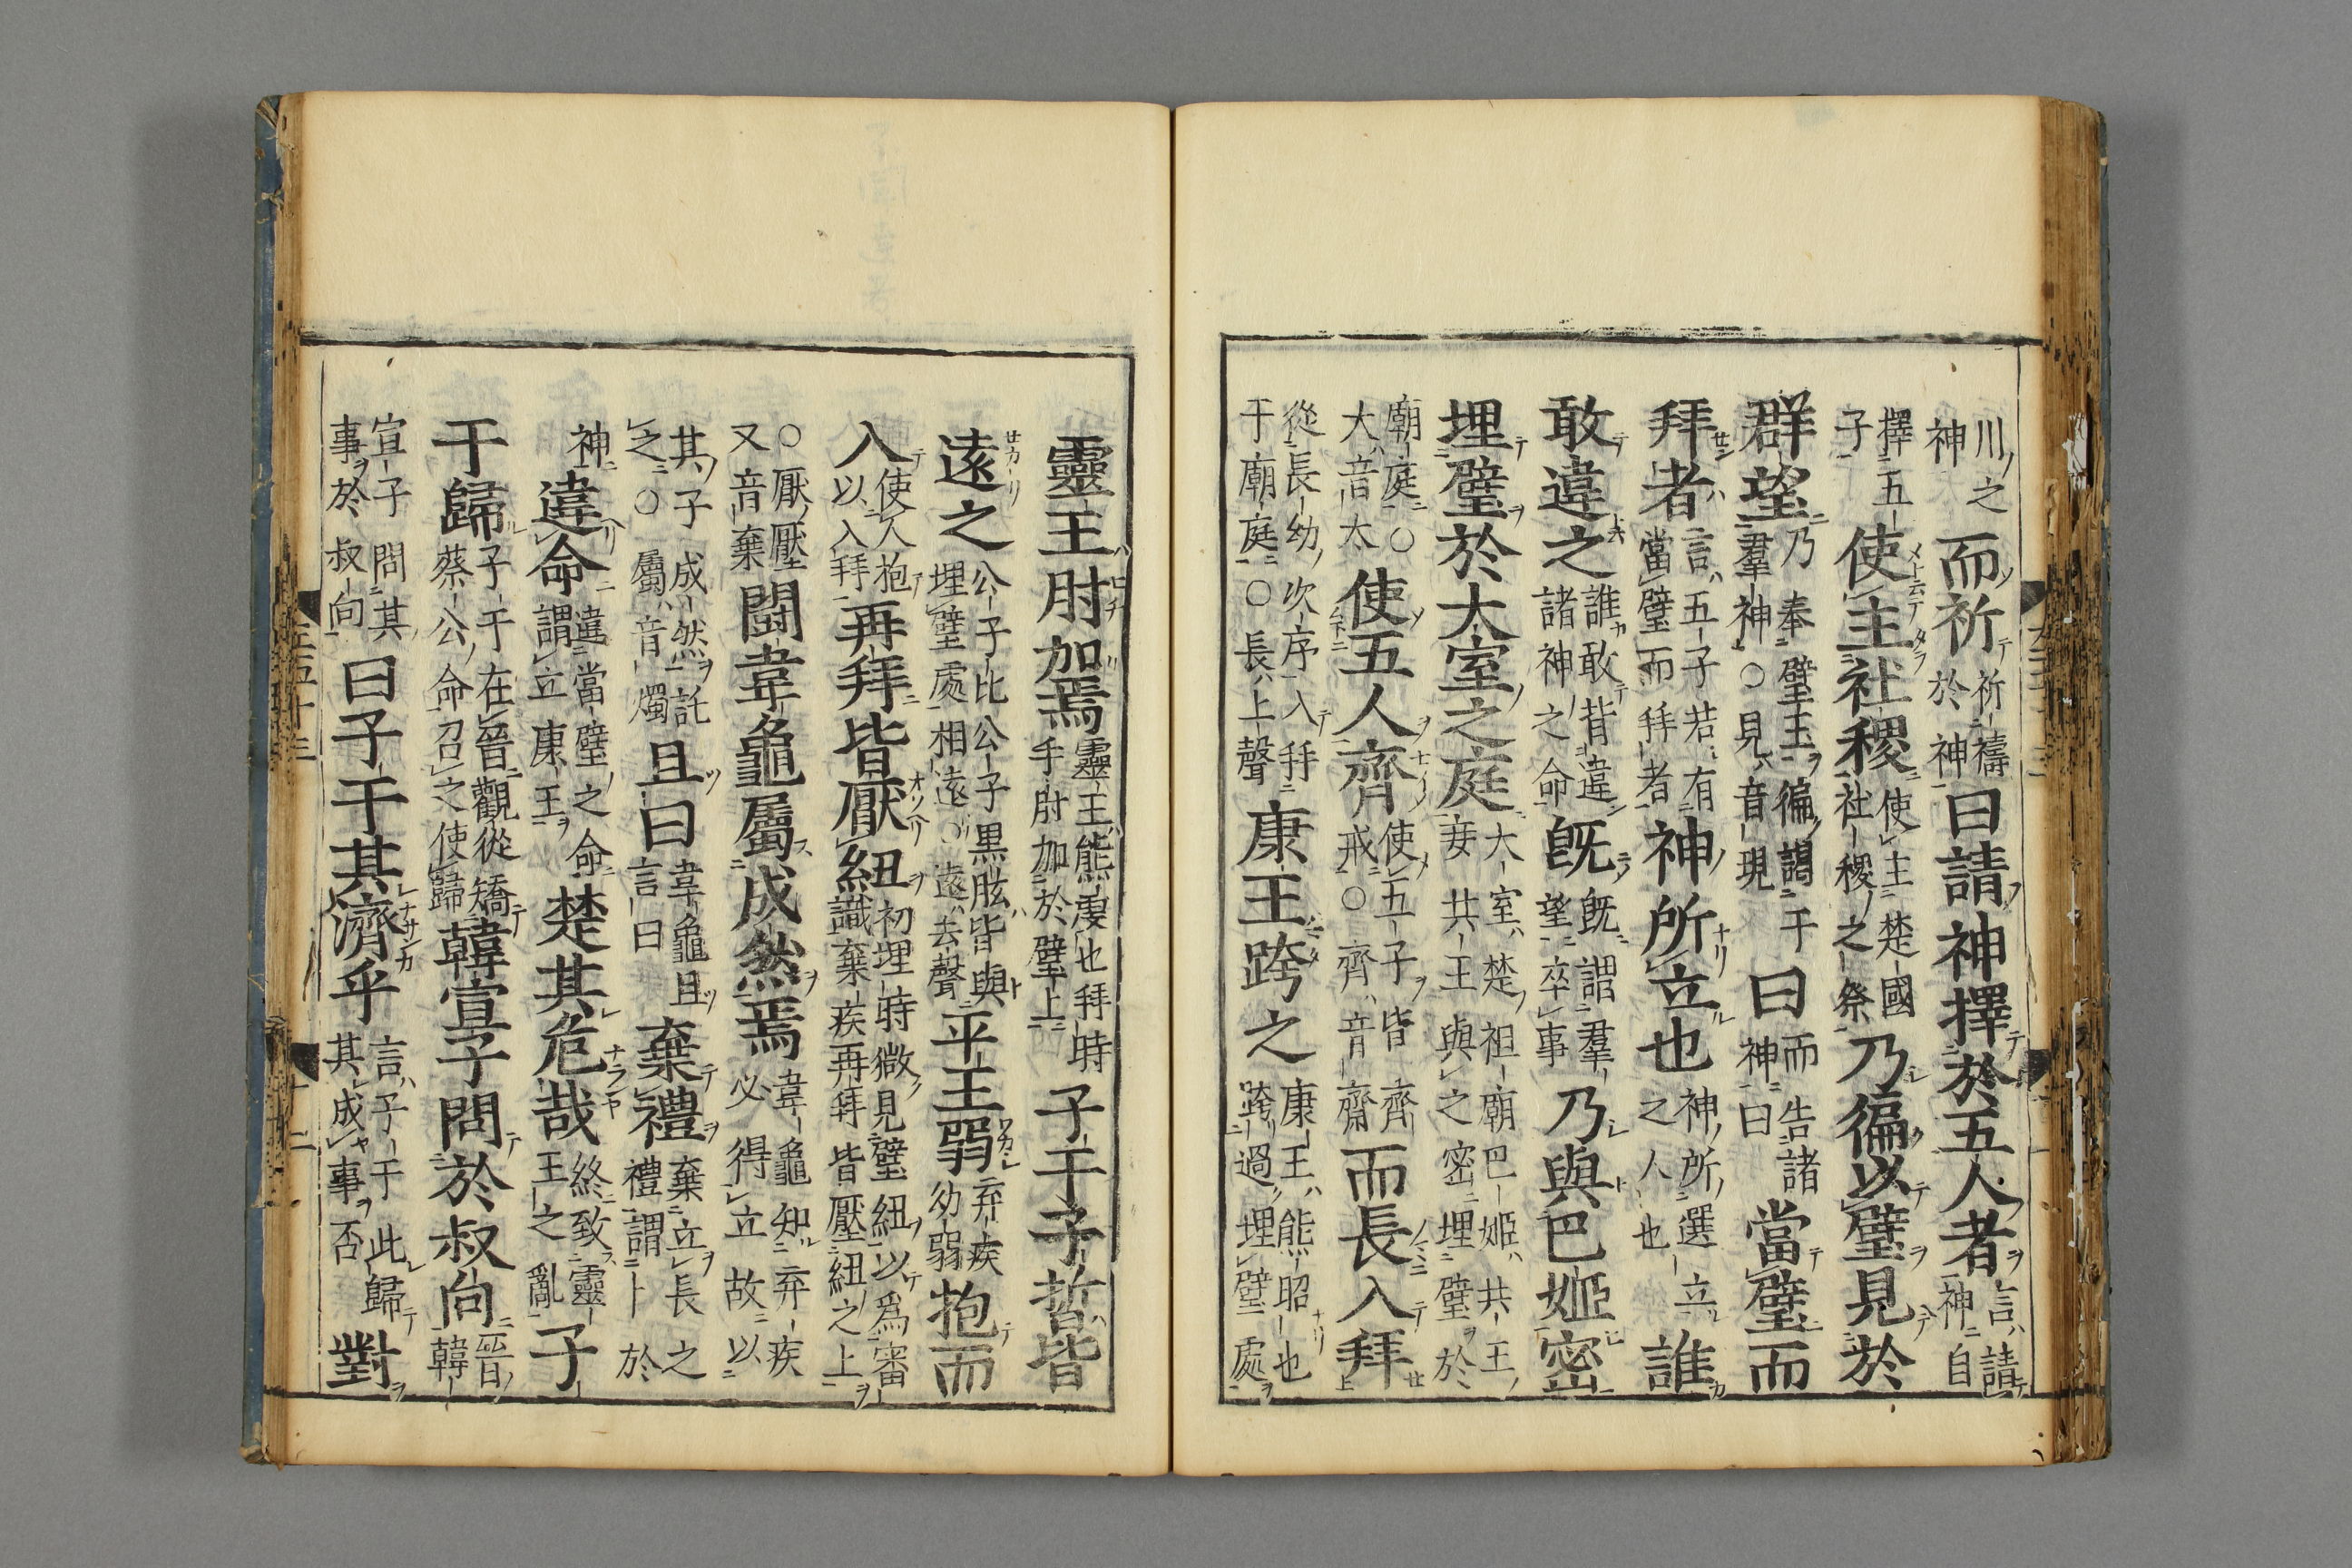 川之神而祈祈禱於神曰請神擇於五人者言請神自
擇五子使主社稷使主楚國社稷之祭乃徧以璧見於
群望乃奉璧玉徧謁于羣神○見音現曰而告諸神曰當璧而
拜者言五子若有當璧而拜者神所立也神所選立之人也誰
敢違之誰敢背違諸神之命旣旣謂羣望卒事乃與巴姬密
埋璧於大室之庭大室楚祖廟巴姬共王妾共王與之密埋璧於
廟庭○大音太使五人齊使五子皆齊戒○齊音齋而長入拜
從長幼次序入拜于廟庭○長上聲康王跨之康王熊昭也跨過埋璧處
靈王肘加焉靈王熊虔也拜時手肘加於璧上子干子晳皆
遠之公子比公子黑肱皆與埋璧處相遠○遠去聲平王弱弃疾幼弱抱而
入使人抱以入拜再拜皆厭紐初埋時微見璧紐以爲審識棄疾再拜皆壓紐之上
○厭壓又音棄鬪韋龜屬成然焉韋龜知弃疾必得立故以
其子成然託之○屬音燭且曰韋龜且言曰棄禮棄立長之禮謂卜於
神違命違當璧之命謂立康王楚其危哉終致靈王之亂子
干歸子干在晉觀從矯蔡公命召之使歸韓宣子問於叔向晉韓
宣子問其事於叔向曰子干其濟乎言子干此歸其成事否對